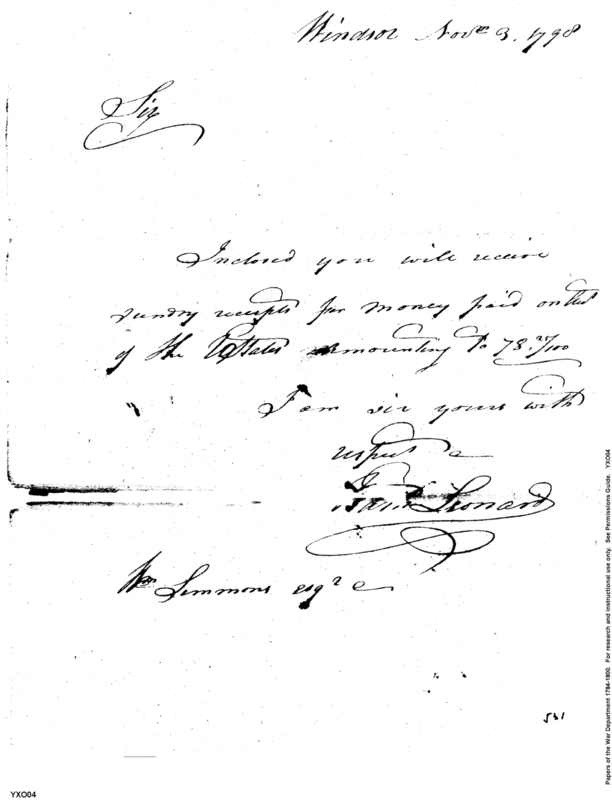 Windsor Novr 3. 1798
Sir
Inclosed you will receive
sundry receipts for money paid on
of the UStates amounting to 78.25/100
I am sir yours with
respect
Leonard
Wm Simmons esqr
561
YXO04
Papers of the War Department 1784-1800. For research and instructional use only. See Permissions Guide. YXO04